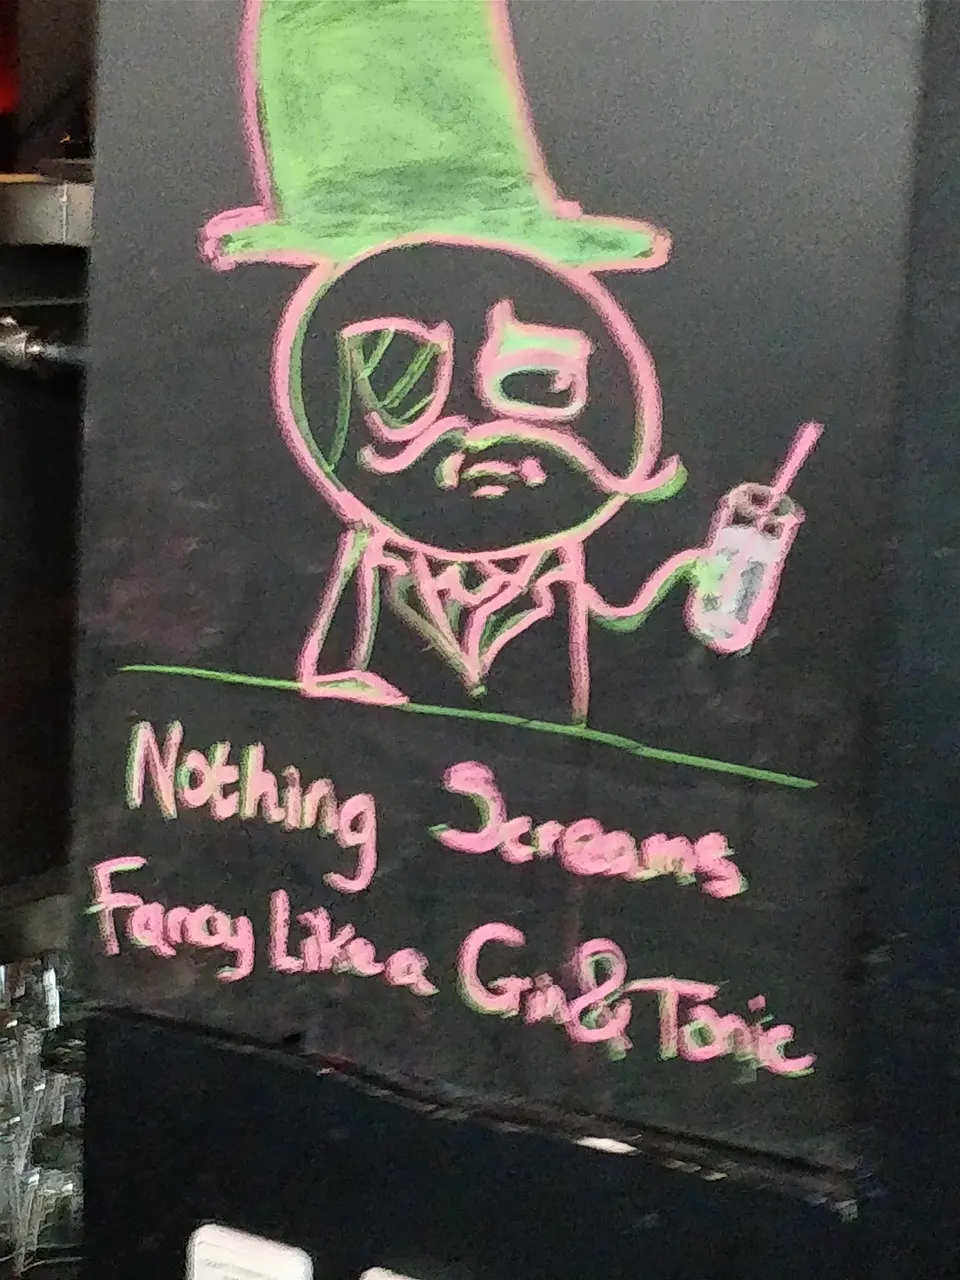 Nothing Screams
Fancy Like a Gin & Tonic